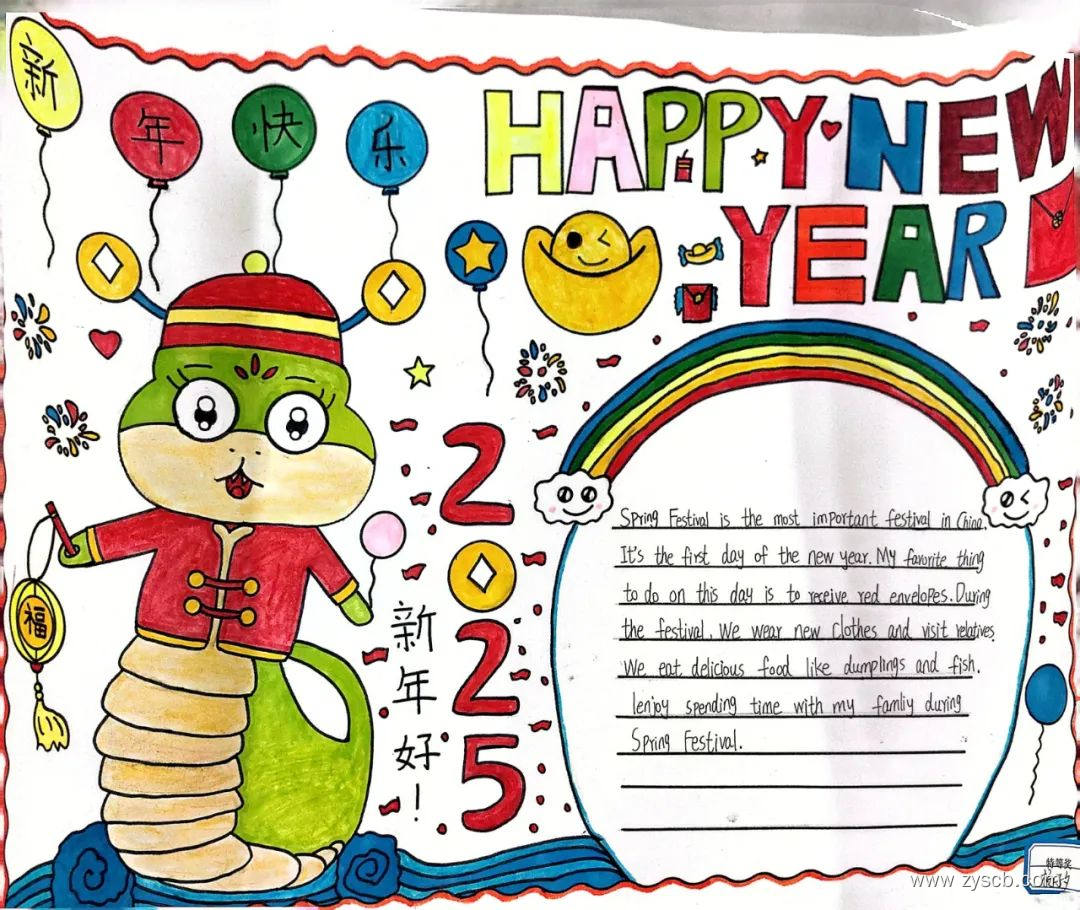 新
年
快
乐
HAPPY NEW
YEAR
福
2025
新年好!
Spring Festival is the most important festival in China.
It's the first day of the new year. My favorite thing
to do on this day is to receive red envelopes. During
the festival. We wear new clothes and visit relatives.
We eat delicious food like dumplings and fish.
Ienjoy spending time with my famliy during
Spring Festival.
特等奖
www.zyscb.com